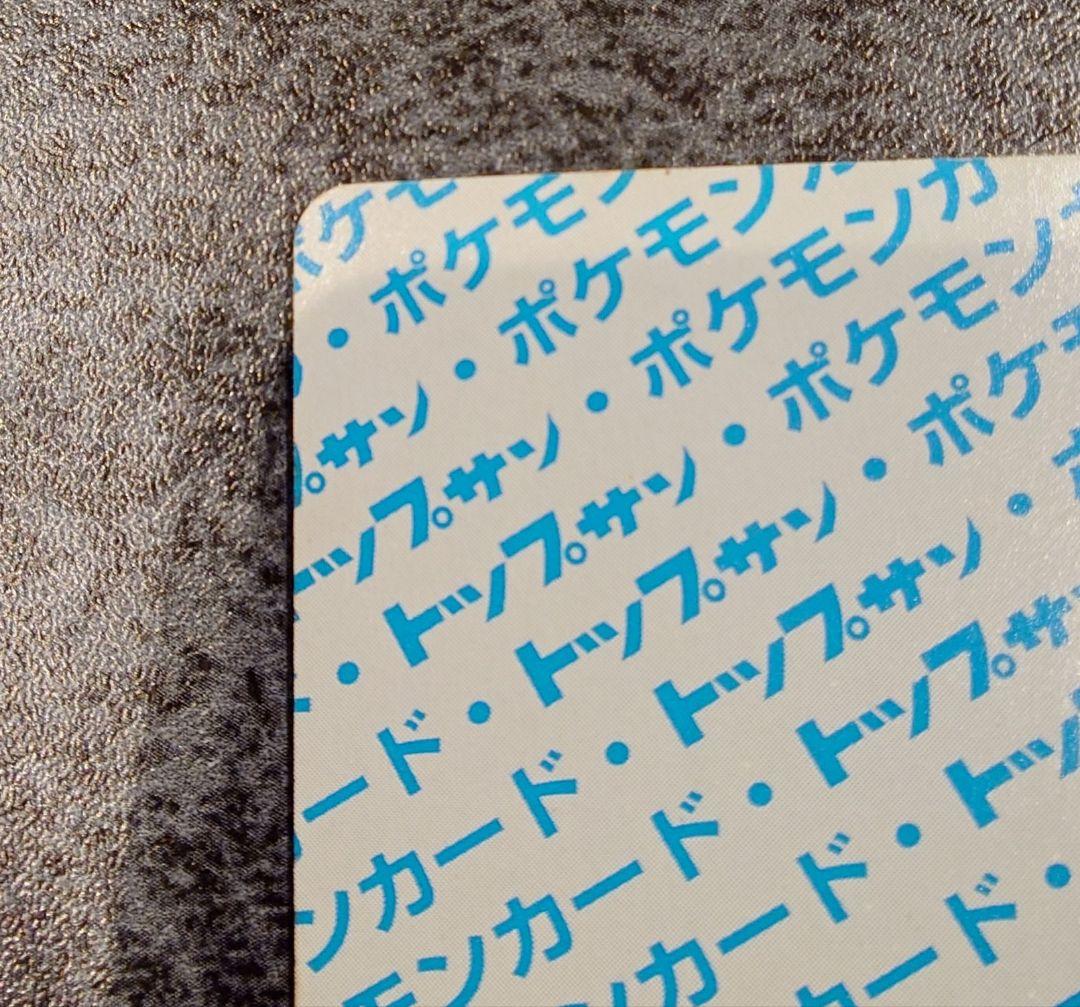 ポケモ
・ポケモン
プサン・ポケモンカ
トップサン・ポケモンカ
・トップサン・ポケモンカ
ード・トップサン・ポケモ
ンカード・トップサン・ポ
モンカード・トップサ
ンカード・トッ
カード・